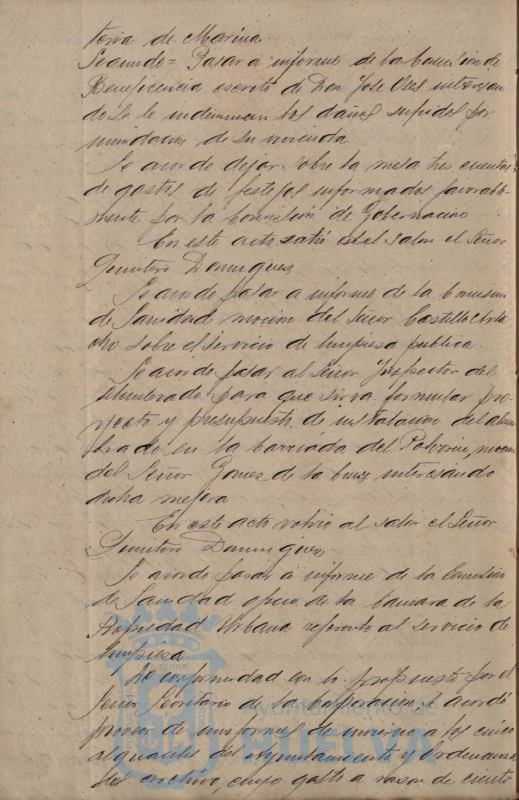 toria de Marina.
Segundo = Pasar a informe de la Comisión de
Beneficencia escrito de Don José Oses interesan
do se le indemnicen los daños sufridos por
inundación de su vivienda
Se acordo dejar sobre la mesa tres cuentas
de gastos de festejos informados favorable-
mente por la Comisión de Gobernación
En este acto salió del salon el Señor
Quintero Dominguez
Se acordo pasar a informe de la Comision
de Sanidad mocion del Señor Castilla
sobre el servicio de limpieza publica.
Se acordo pasar al Señor Inspector del
Alumbrado para que sirva formular pro-
yecto y presupuesto de instalacion del alum
brado en la barriada del Polvorin, mocion
del Señor Gomez de la Cruz interesando
dicha mejora
En este acto volvio al salon el Señor
Quintero Dominguez
Se acordo pasar a informe de la Comision
de Sanidad oficio de la Camara de la
Propiedad Urbana referente al servicio de
limpieza
De conformidad con lo propuesto por el
Señor Secretario de la Corporacion se acordó
proveer de uniformes de invierno a los cinco
alguaciles del Ayuntamiento y ordenanza
del archivo, cuyo gasto a razon de ciento
Ayuntamiento de
HUELVA